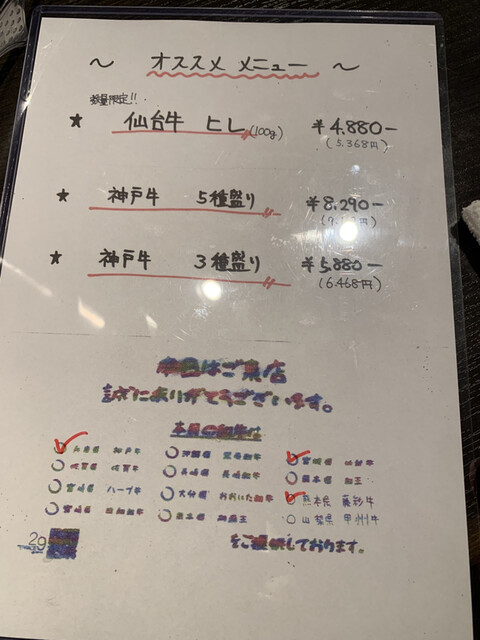 ～ オススメ メニュー ～
数量限定!!
★ 仙台牛 ヒレ(100g) ¥4.880-
(5.368円)
★ 神戸牛 5種盛り ¥8.290-
★ 神戸牛 3種盛り ¥5.880-
(6.468円)
本日はご来店
誠にありがとうございます。
本日の和牛は
兵庫県 神戸牛
佐賀県 佐賀牛
宮崎県 ハーブ牛
宮崎県
沖縄県
長崎県 長崎和牛
大分県 おおいた和牛
熊本県 和王
宮城県 仙台牛
熊本県 和王
熊本県 藤彩牛
山梨県 甲州牛
をご提供しております。
29